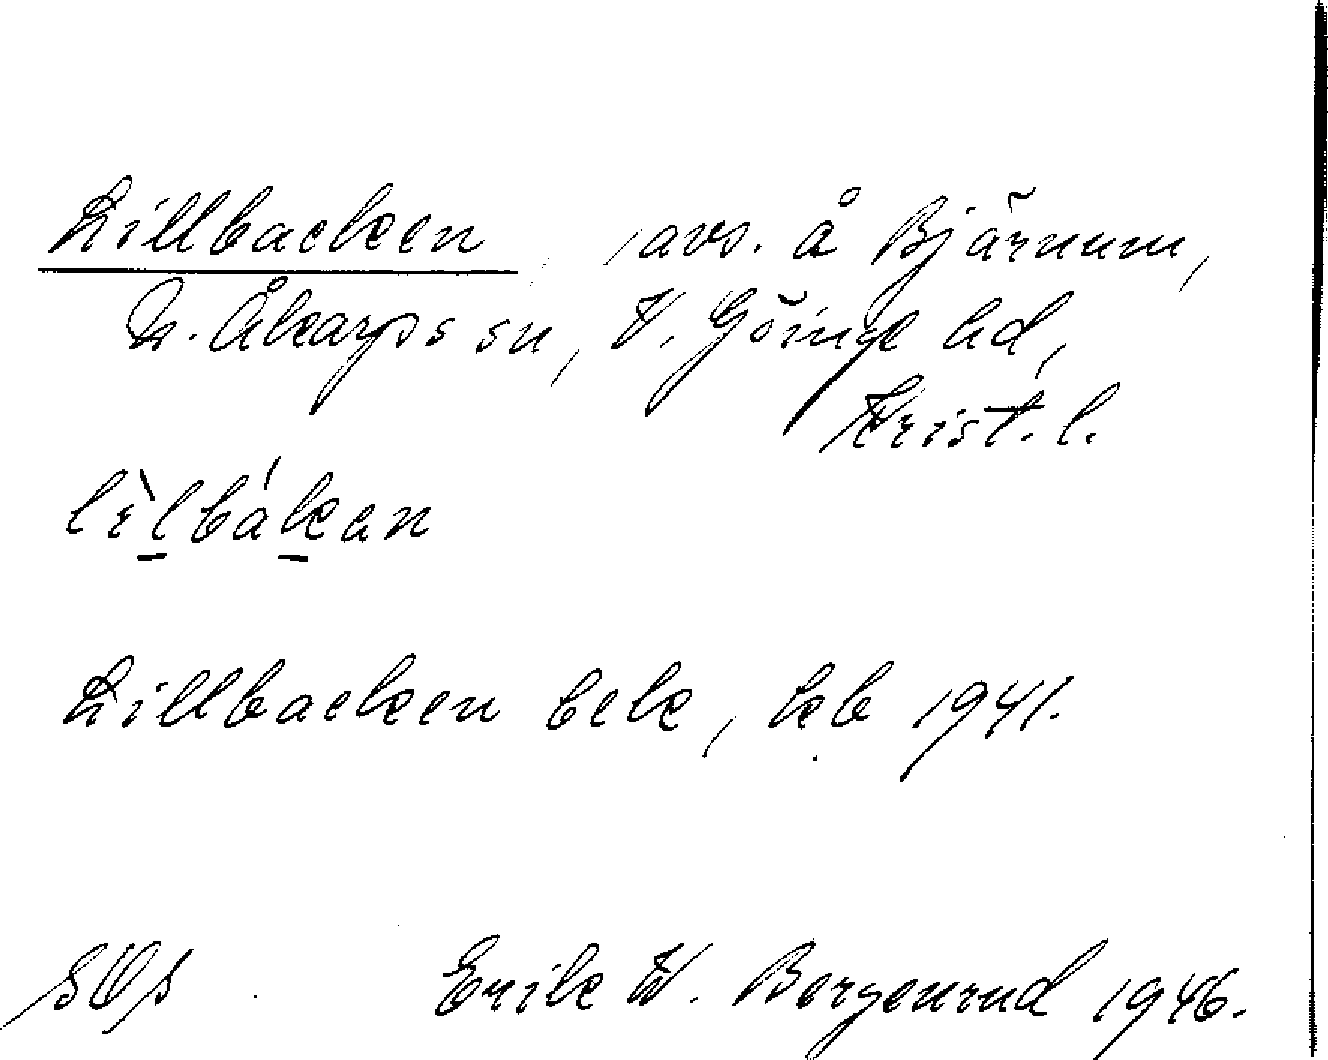 Lillbacken, avs. å Bjärnum,
N. Åkarps sn, V. Göinge hd,
Krist. l.
lìlbákan
Lillbacken bek, kb 1941.
Erik W. Bergenrud 1946.